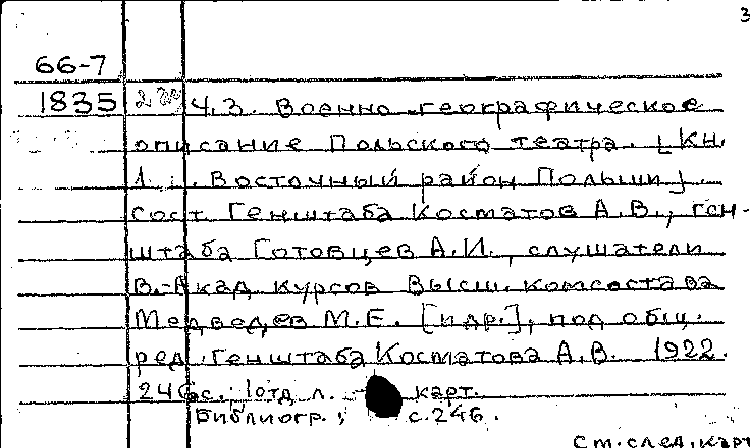 3
66-7
1835 Ч.3. Военно-географическое
описание Польского театра. [Кн.
1. Восточный район Польши].
сост. Генштаба Косматов А.В., ген-
штаба Готовцев А.И., слушатели
В.-Акад. курсов Высш. комсостава
Медведев М.Е. [и др.], под общ.
ред. Генштаба Косматова А.В. 1922.
246с., 1отд. л. карт.
Библиогр.: с.246.
См. след. карт